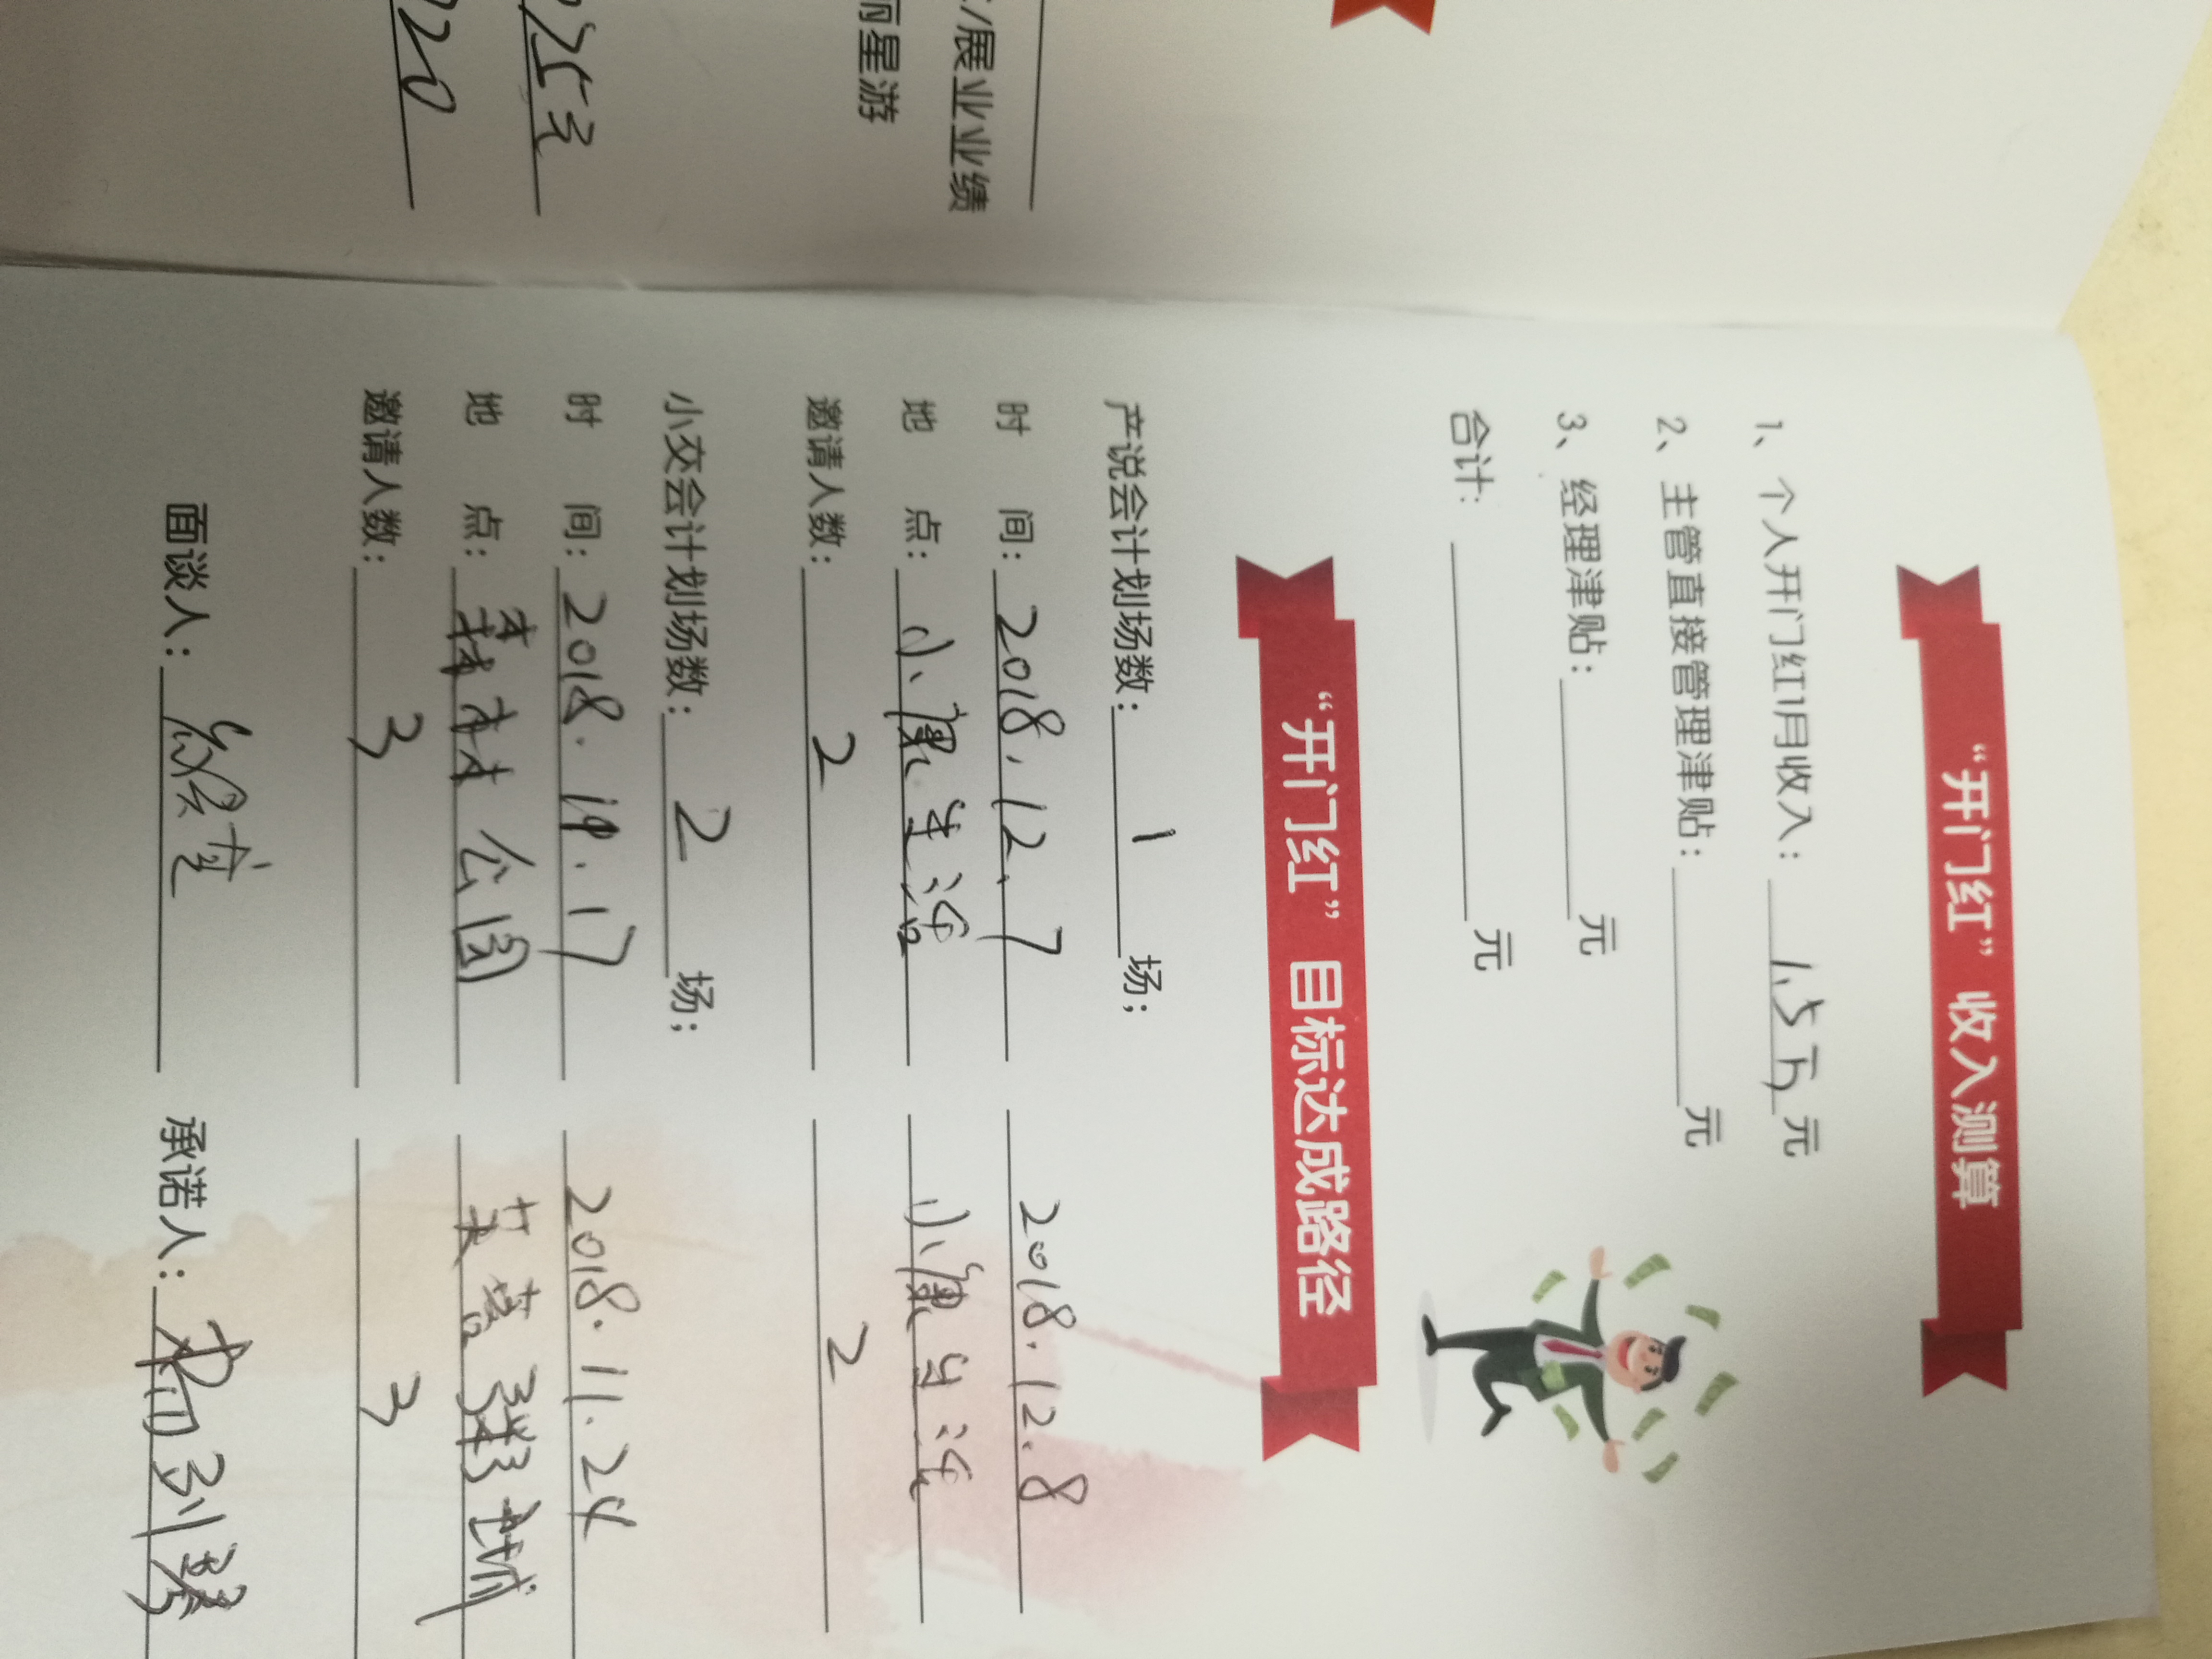 /展业业绩
丽星游
220
“开门红” 收入测算
1、个人开门红1月收入：1.5万元
2、主管直接管理津贴：元
3、经理津贴：元
合计：元
“开门红” 目标达成路径
产说会计划场数：1场；
时 间：2018.12.7 2018.12.8
地 点：小康生活 小康生活
邀请人数：2 2
小交会计划场数：2场；
时 间：2018.11.17 2018.11.24
地 点：森林公园
邀请人数：3 3
面谈人： 承诺人：